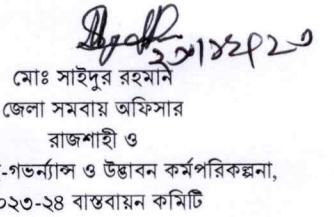 মোঃ সাইদুর রহমান
জেলা সমবায় অফিসার
রাজশাহী ও
-গভর্ন্যান্স ও উদ্ভাবন কর্মপরিকল্পনা,
২০২৩-২৪ বাস্তবায়ন কমিটি